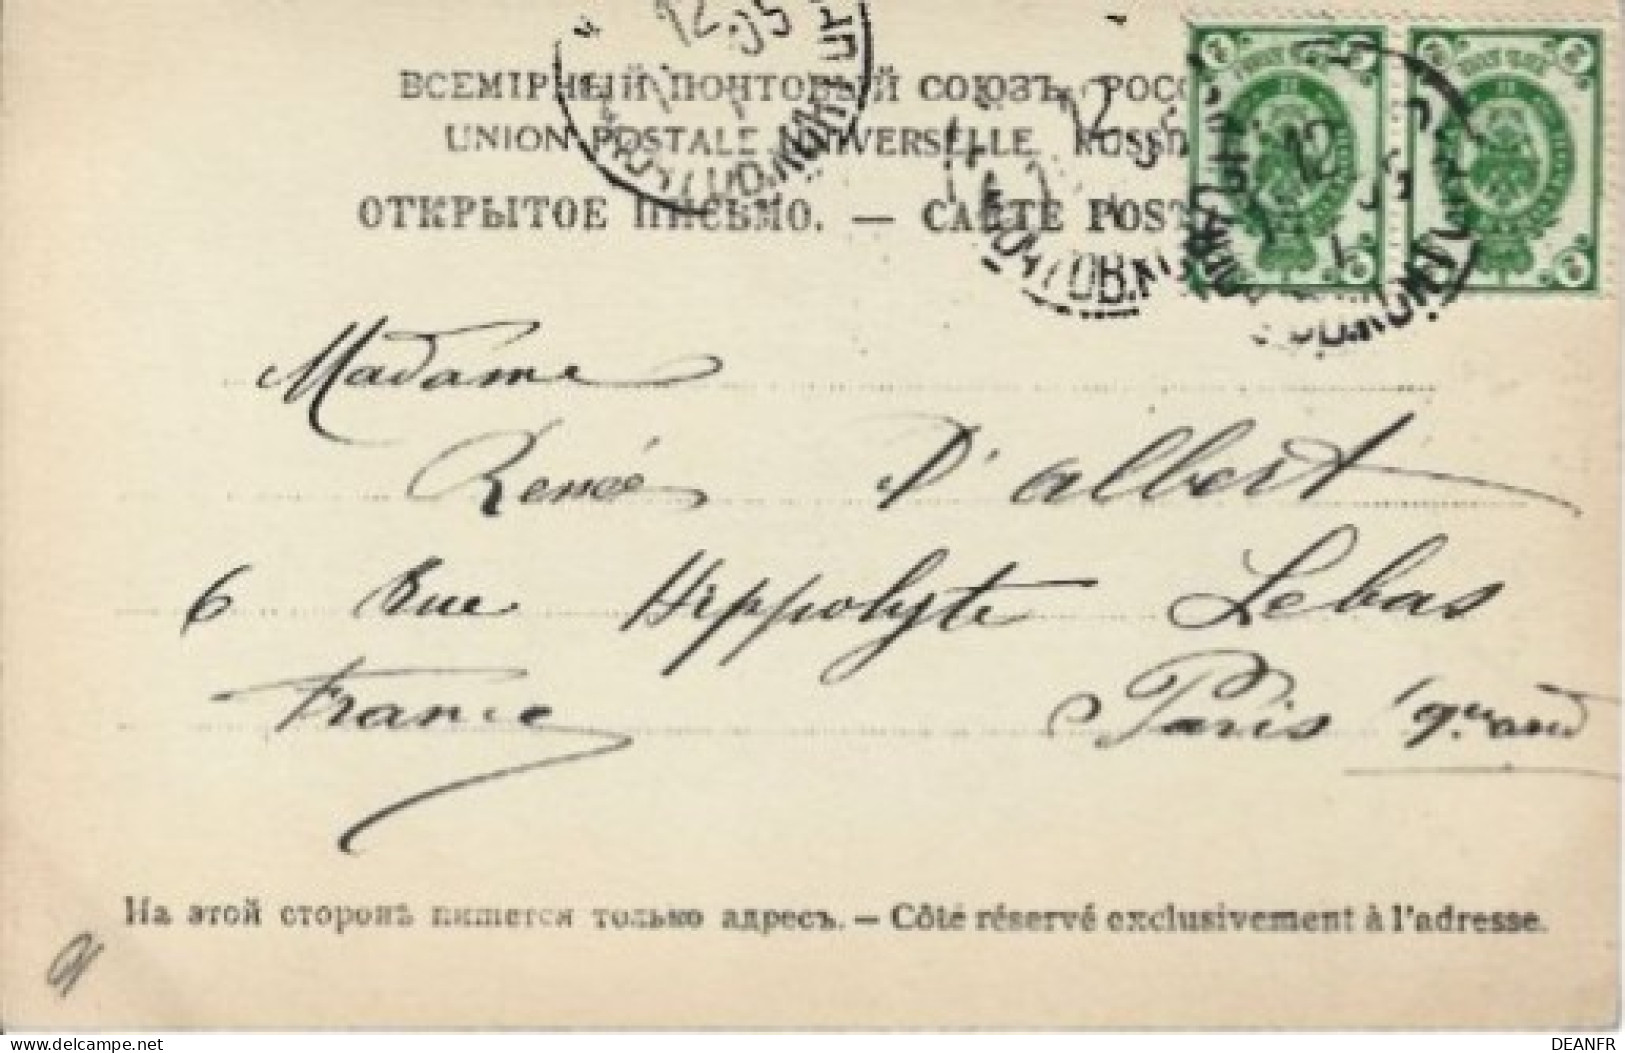 ВСЕМІРНЫЙ ПОЧТОВЫЙ СОЮЗЪ. РОСС
UNION POSTALE UNIVERSELLE. RUSSI
ОТКРЫТОЕ ПИСЬМО. — CARTE POST
12
05
12
2 2 2 2
Madame
Renée d'albert
6 Rue Hippolyte Lebas
France Paris 9me arrd
На этой сторонѣ пишется только адресъ. — Côté réservé exclusivement à l'adresse.
www.delcampe.net
DEANFR